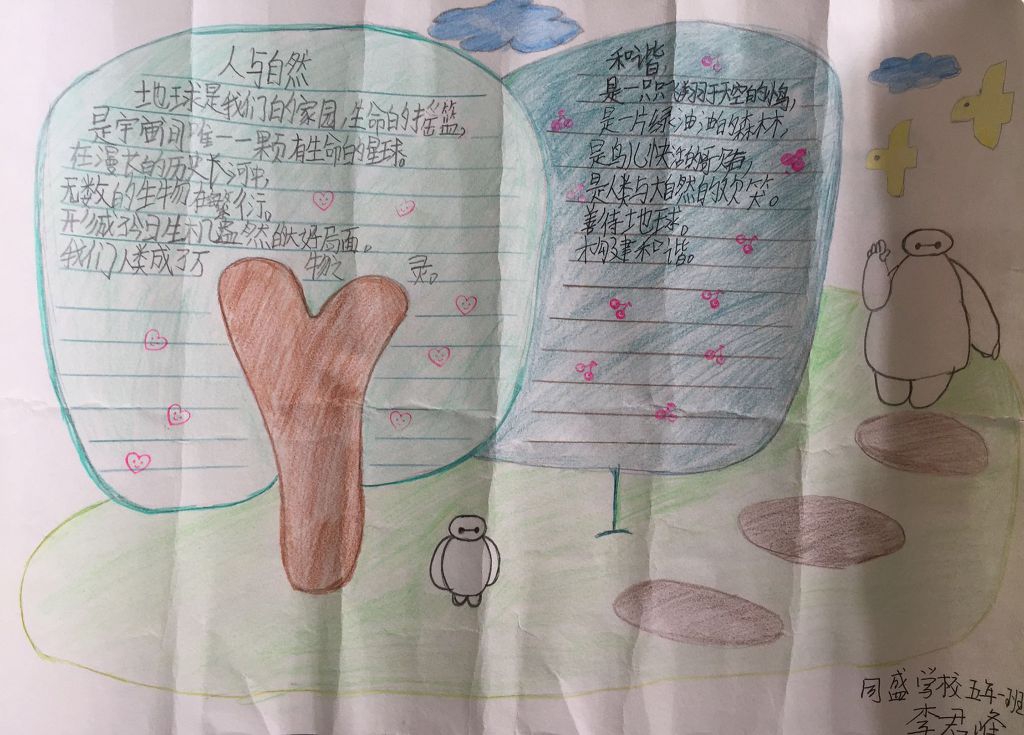 人与自然
地球是我们的家园,生命的摇篮,
是宇宙间唯一一颗有生命的星球。
在漫长的历史长河中,
无数的生生物在繁衍。
形成了今日生机盎然的大好局面。
我们人类成了万物之灵。
和谐,
是一只翱翔于天空的小鸟,
是一片绿油油的森林,
是鸟儿快活的乐园,
是人类与大自然的欢笑。
善待地球。
构建和谐。
同盛学校五年一班
李君峰